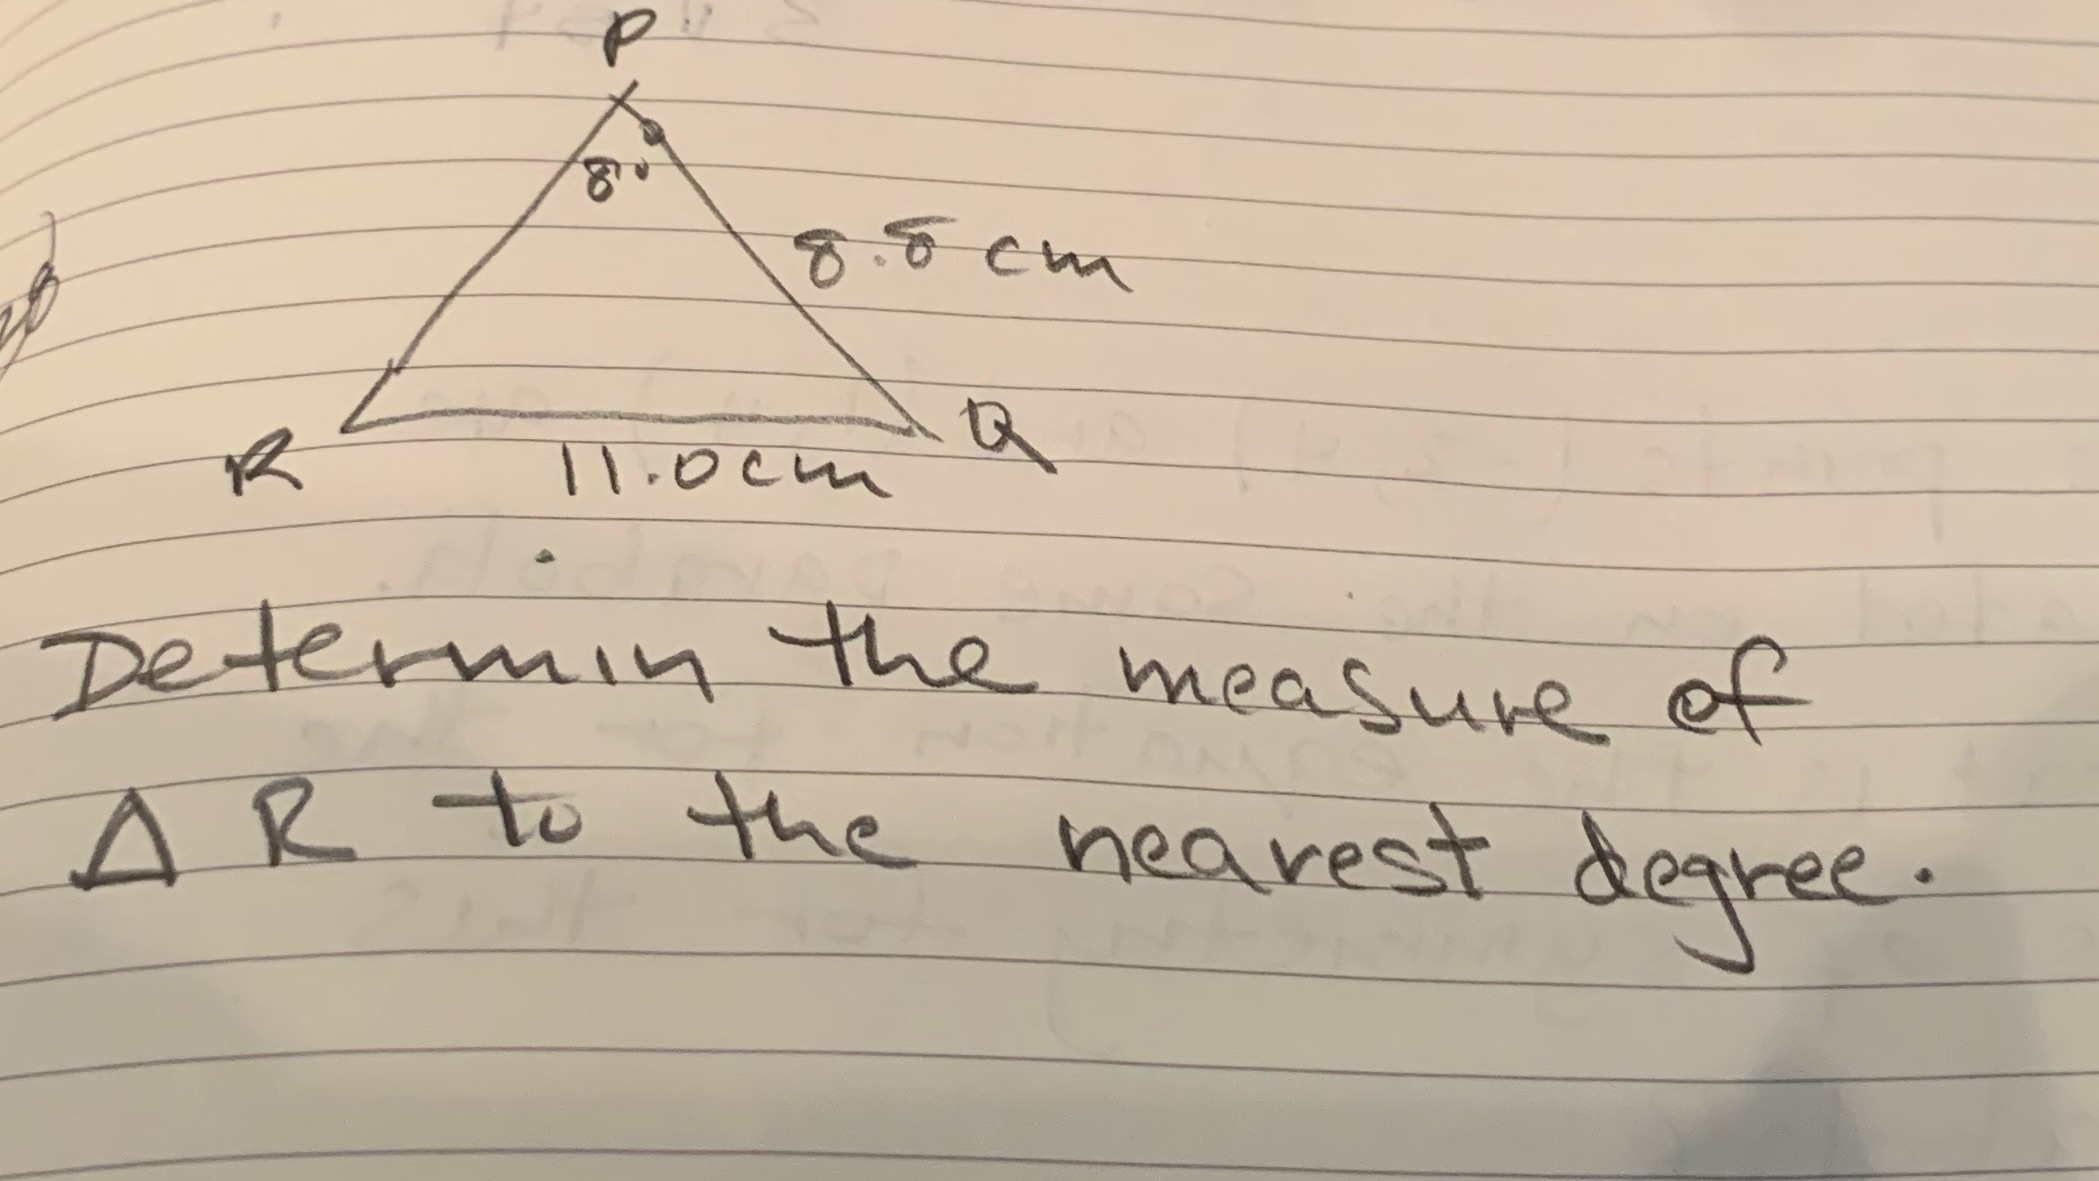 P
8.8 cm
R
Q
11.0cm
Determin the measure of
Δ R to the nearest degree.